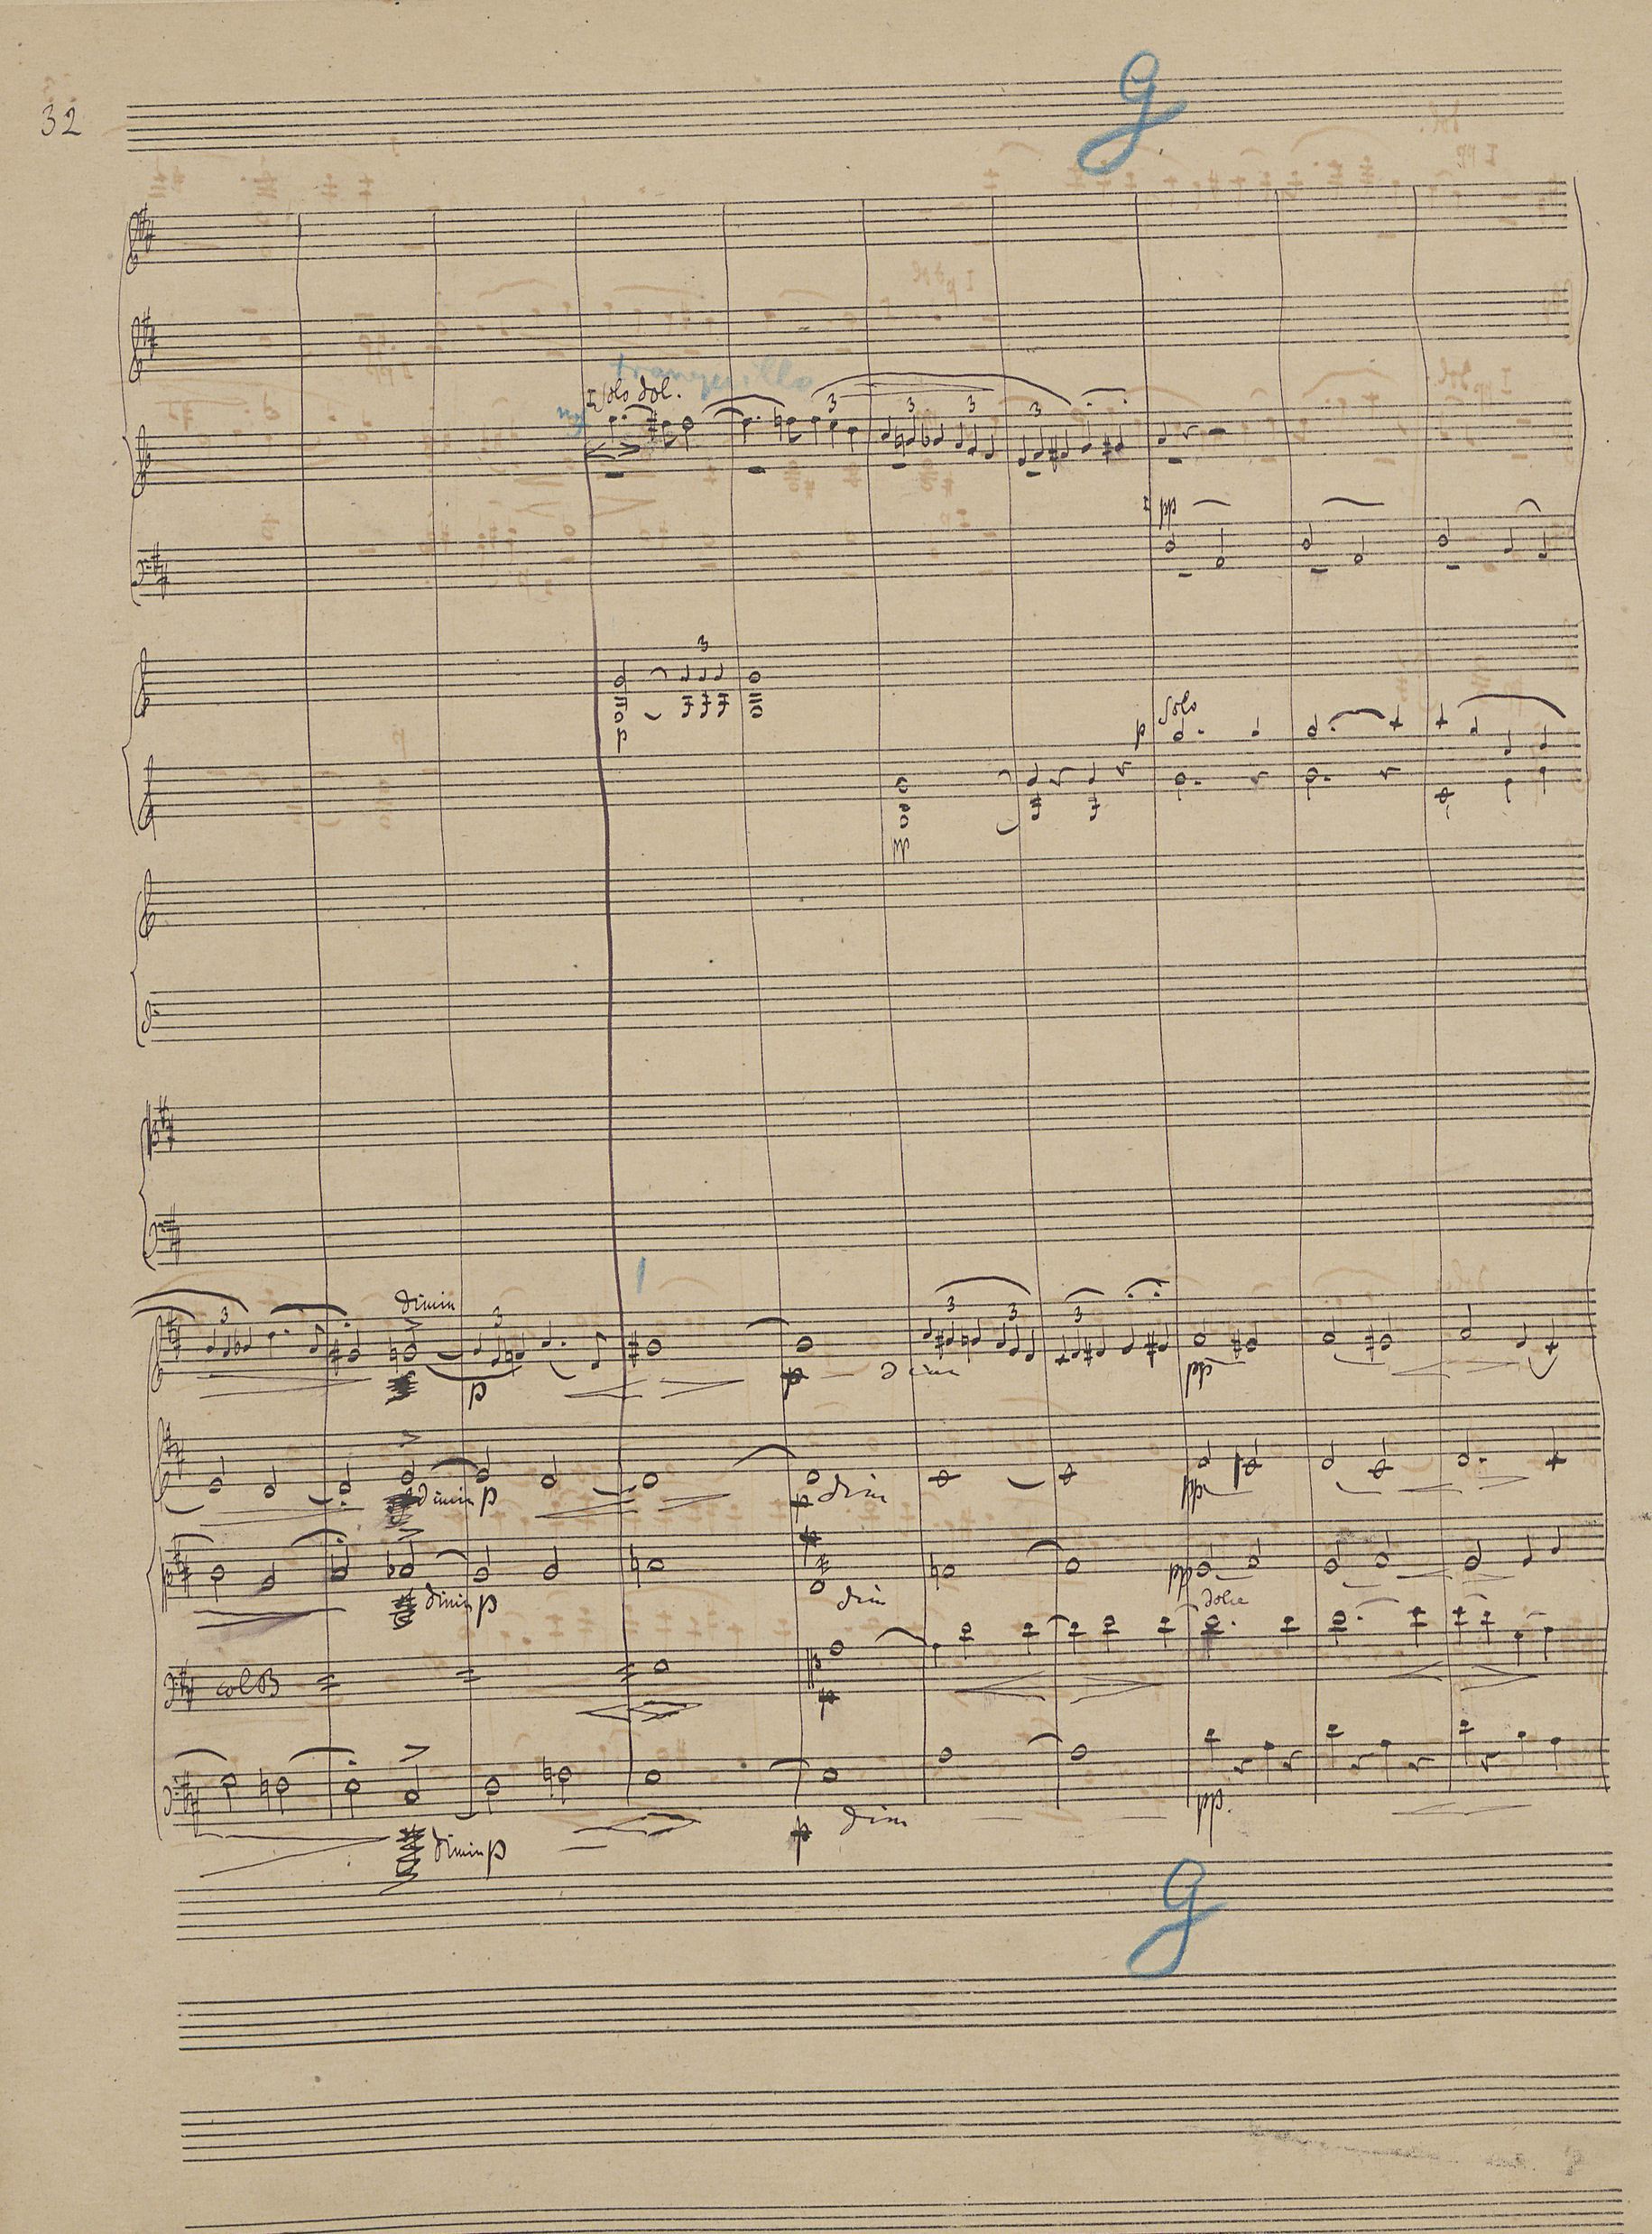 32
g
tranquillo
I Solo dol.
mf
3
3
3
3
I pp
3
p
Solo
p
pp
1
dimin
3
3
3
3
3
p
p
dim
pp
dimin p
p
dim
pp
dimin p
dim
pp
dolce
col B
p
dimin p
p
dim
pp.
g